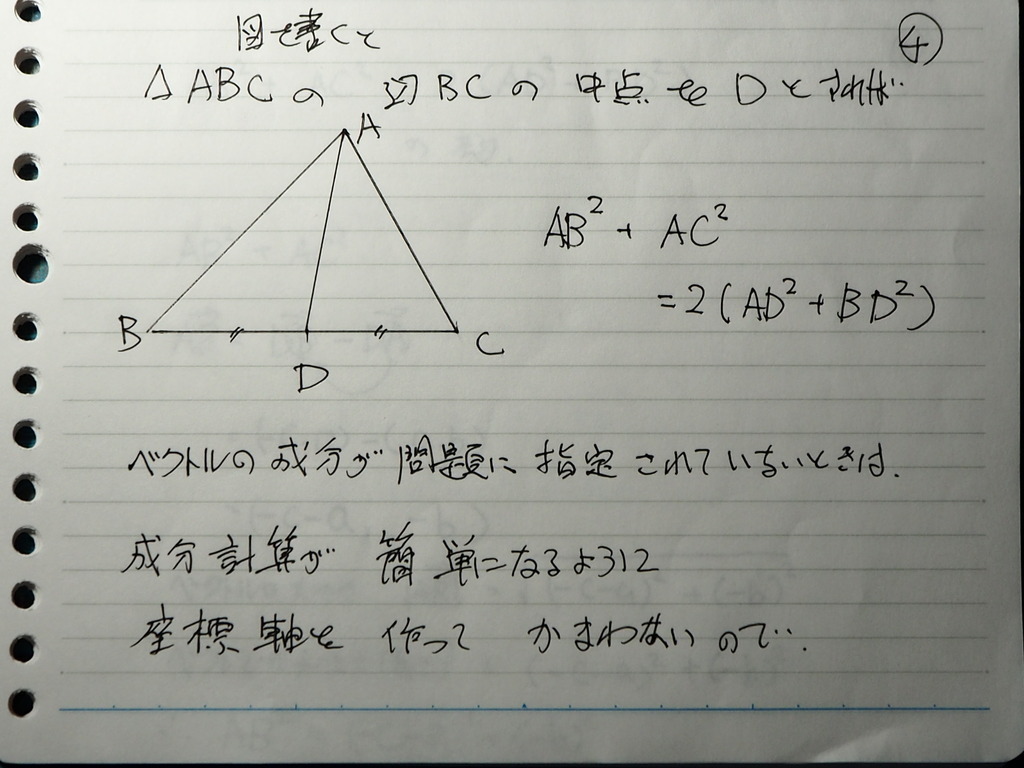 図を書くと
④
△ABCの 辺BCの 中点をDとすれば…
A
AB² + AC²
= 2(AD² + BD²)
B
C
D
ベクトルの成分が問題に指定されていないときは、
成分計算が 簡単になるように
座標軸を 作って かまわないので…